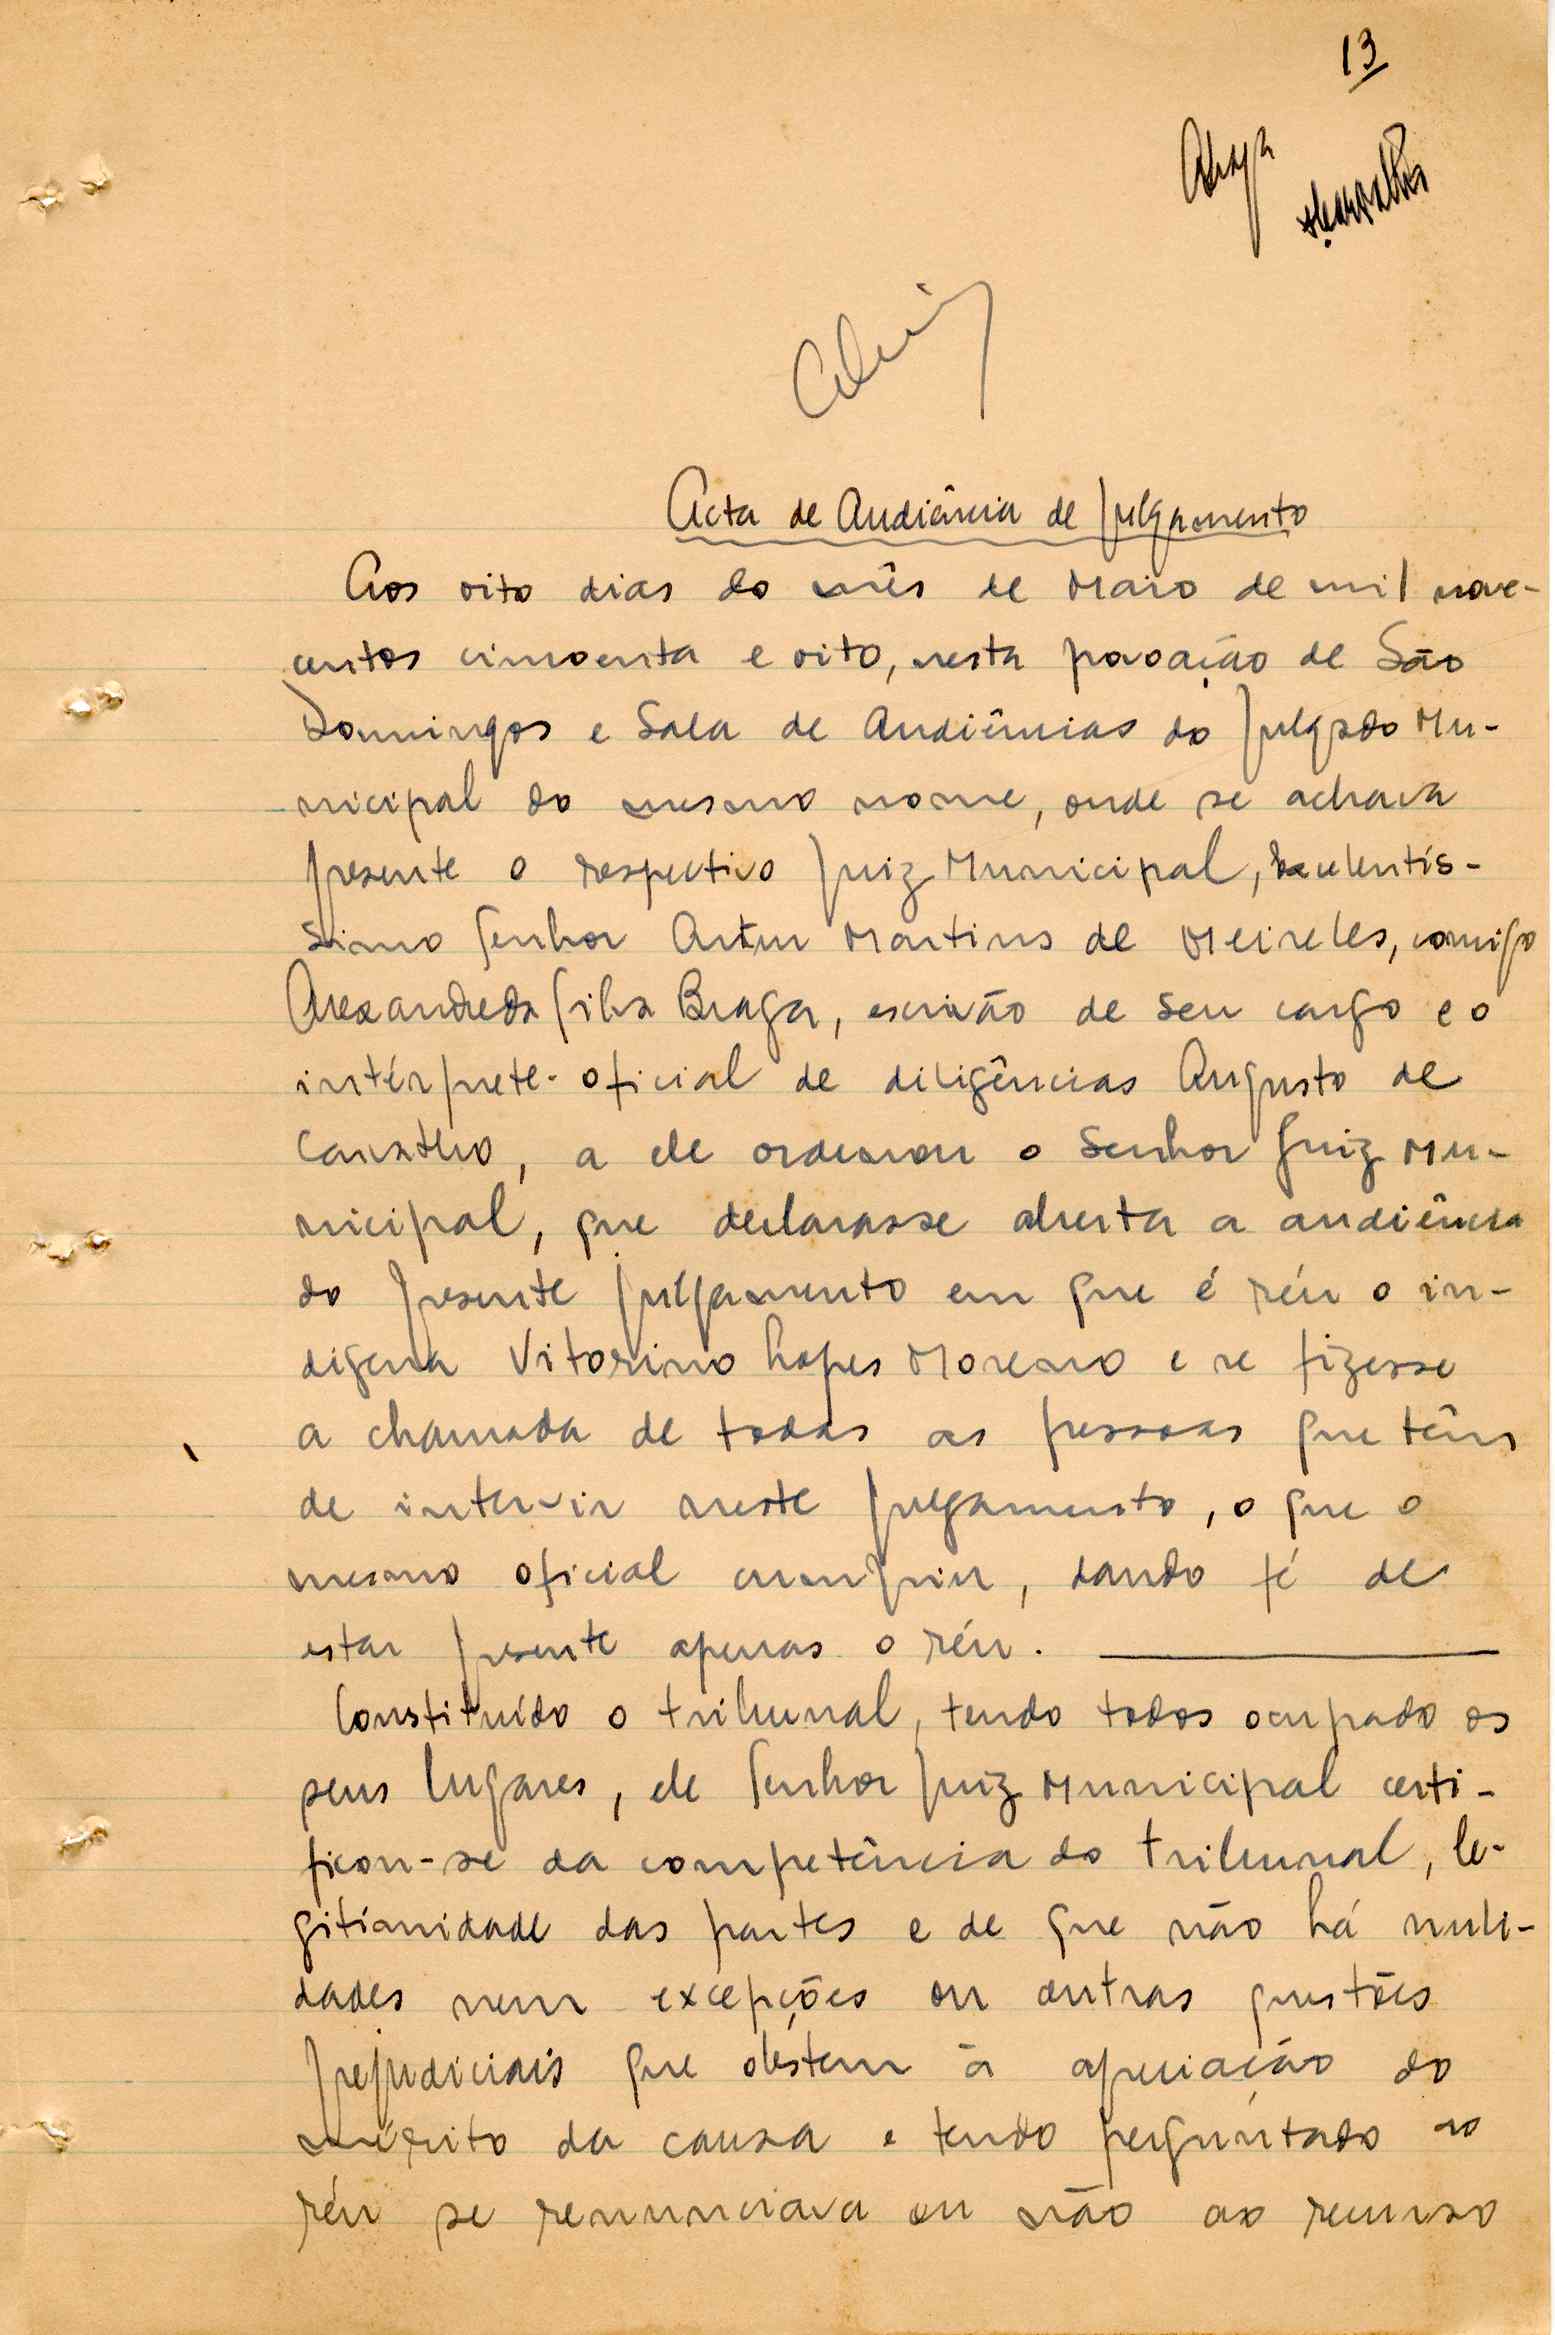 13
Braga
Acarvalho
Acta de Audiência de Julgamento
Aos oito dias do mês de Maio de mil nove-
centos cincoenta e oito, nesta povoação de São
Domingos e Sala de Audiências do Julgado Mu-
nicipal do mesmo nome, onde se achava
presente o respectivo Juiz Municipal, Excelentís-
simo Senhor Artur Martins de Meireles, comigo
Alexandre da Silva Braga, escrivão de seu cargo e o
intérprete-oficial de diligências Augusto de
Carvalho, a ele ordenou o Senhor Juiz Mu-
nicipal, que declarasse aberta a audiência
do presente julgamento em que é réu o in-
digena Vitorino Lopes Moreno e se fizesse
a chamada de todas as pessoas que têm
de intervir neste julgamento, o que o
mesmo oficial cumpriu, dando fé de
estar presente apenas o réu.
Constituído o tribunal, tendo todos ocupado os
seus lugares, ele Senhor Juiz Municipal certi-
ficou-se da competência do tribunal, le-
gitimidade das partes e de que não há nuli-
dades nem excepções ou outras questões
prejudiciais que obstem à apreciação do
mérito da causa e tendo perguntado ao
réu se renunciava ou não ao recurso